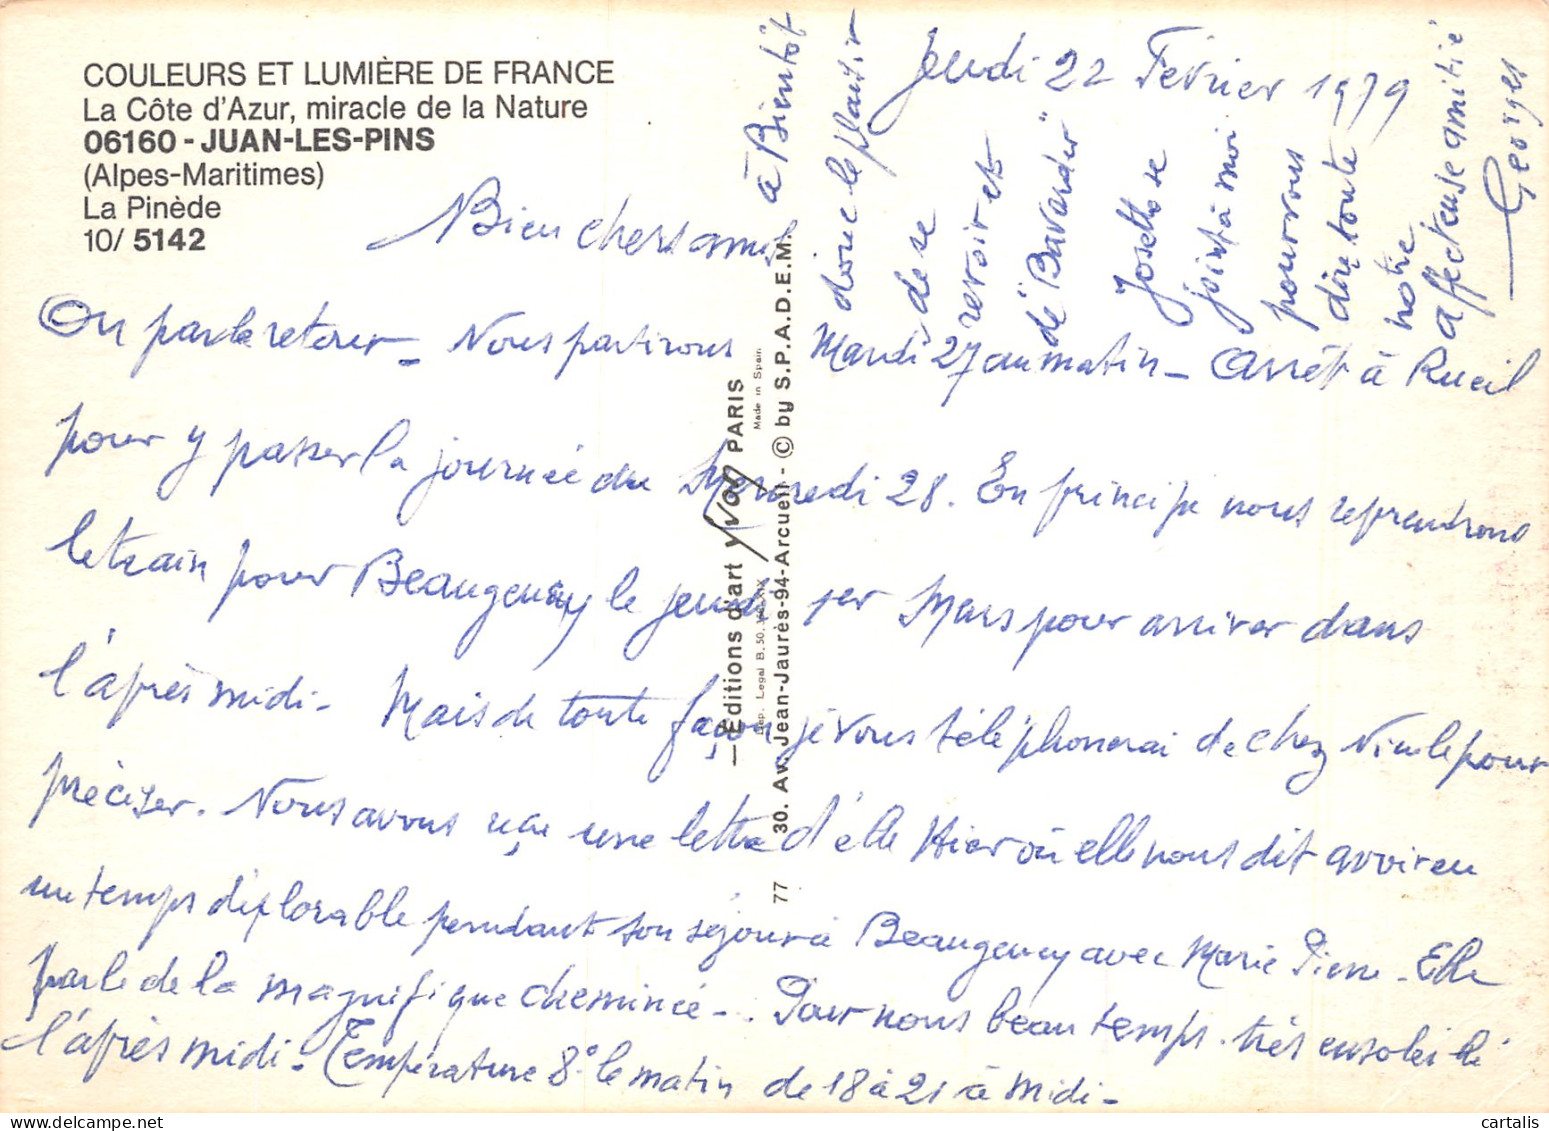 COULEURS ET LUMIÈRE DE FRANCE
La Côte d'Azur, miracle de la Nature
06160 - JUAN-LES-PINS
(Alpes-Maritimes)
La Pinède
10/ 5142
Jeudi 22 Février 1979
Bien chers amis
On parle retour - Nous partirons Mardi 27 au matin - Arrêt à Rueil
pour y passer la journée du Mercredi 28. En principe nous reprendrons
le train pour Beaugency le jeudi 1er Mars pour arriver dans
l'après midi - Mais de toute façon je vous téléphonerai de chez Nicole pour
préciser. Nous avons reçu une lettre d'elle Hier où elle nous dit avoir eu
un temps déplorable pendant son séjour à Beaugency avec Marie Pierre - Elle
parle de la magnifique cheminée -. Pour nous beau temps. très ensoleillé
l'après midi - Température 8° le matin de 18 à 21 à Midi -
à Bientôt
donc le plaisir
de se
revoir et
de "Bavarder"
Josette se
joint à moi
pour vous
dire toute
notre
affectueuse amitié
Georges
— Éditions d'art yvon PARIS
Made in Spain
Dep. Legal B. 50.
30. Av. Jean-Jaurès-94-Arcueil - © by S.P.A.D.E.M.
77
cartalis